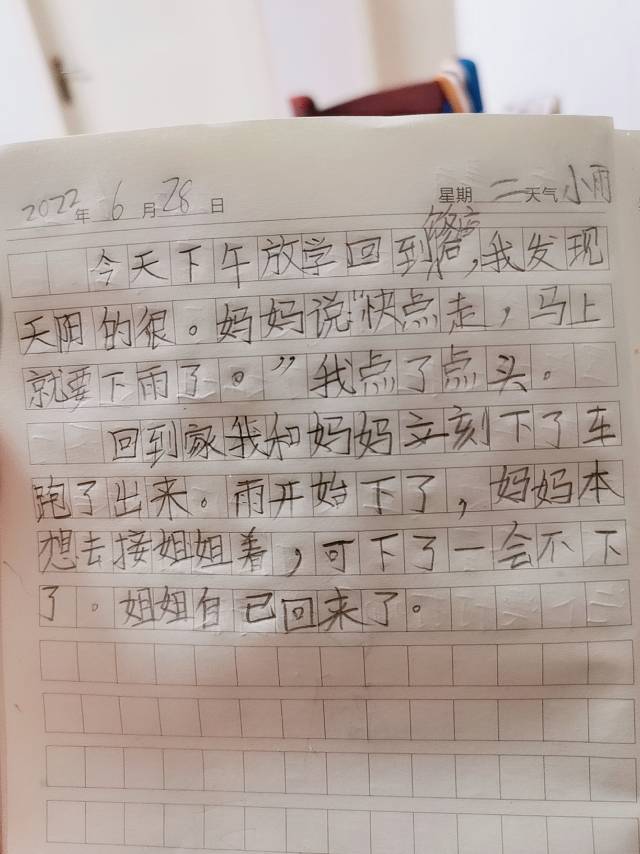 2022年 6月28日 星期二 天气小雨
今天下午放学回到路,我发现
天阳的很。妈妈说“快点走,马上
就要下雨了。”我点了点头。
回到家我和妈妈立刻下了车
跑了出来。雨开始下了,妈妈本
想去接姐姐着,可下了一会不下
了。姐姐自己回来了。